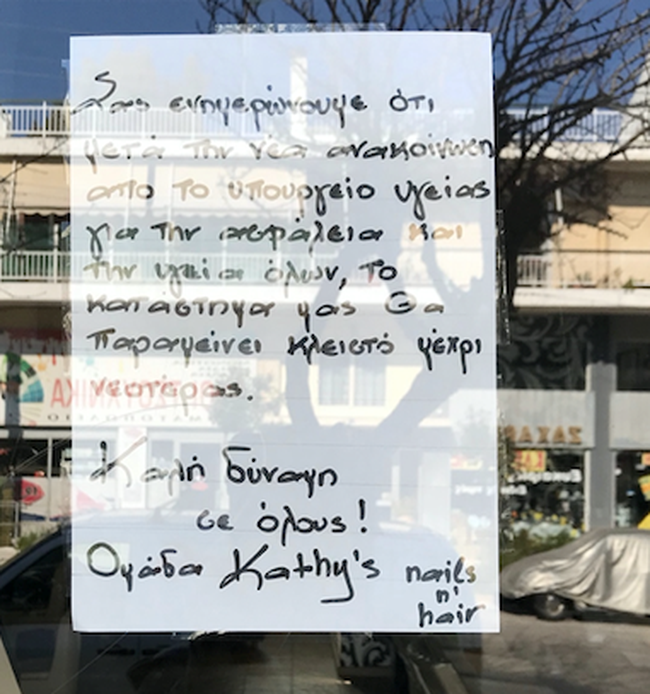 Σας ενημερώνουμε ότι
μετά την νέα ανακοίνωση
απο το υπουργείο υγείας
για την ασφάλεια και
την υγεία όλων, το
κατάστημα μας θα
παραμείνει κλειστό μέχρι
νεοτέρας.
Καλή δύναμη
σε όλους!
Ομάδα Kathy's nails
n'
hair
ΖΑΧΑΡ